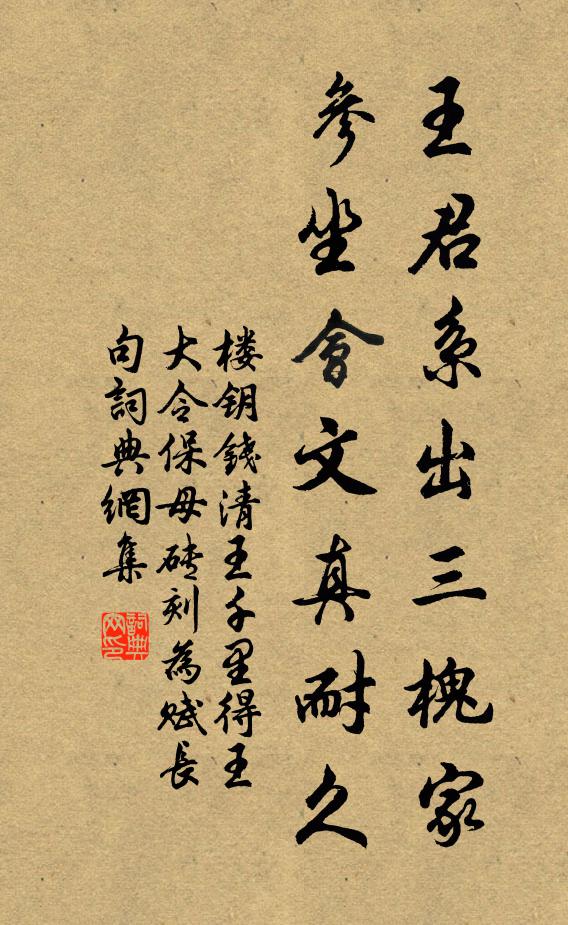 王君系出三槐家
參坐會文真耐久
楼钥錢清王千里得王
大令保母磚刻為赋長
句詞典網集
詞典网印